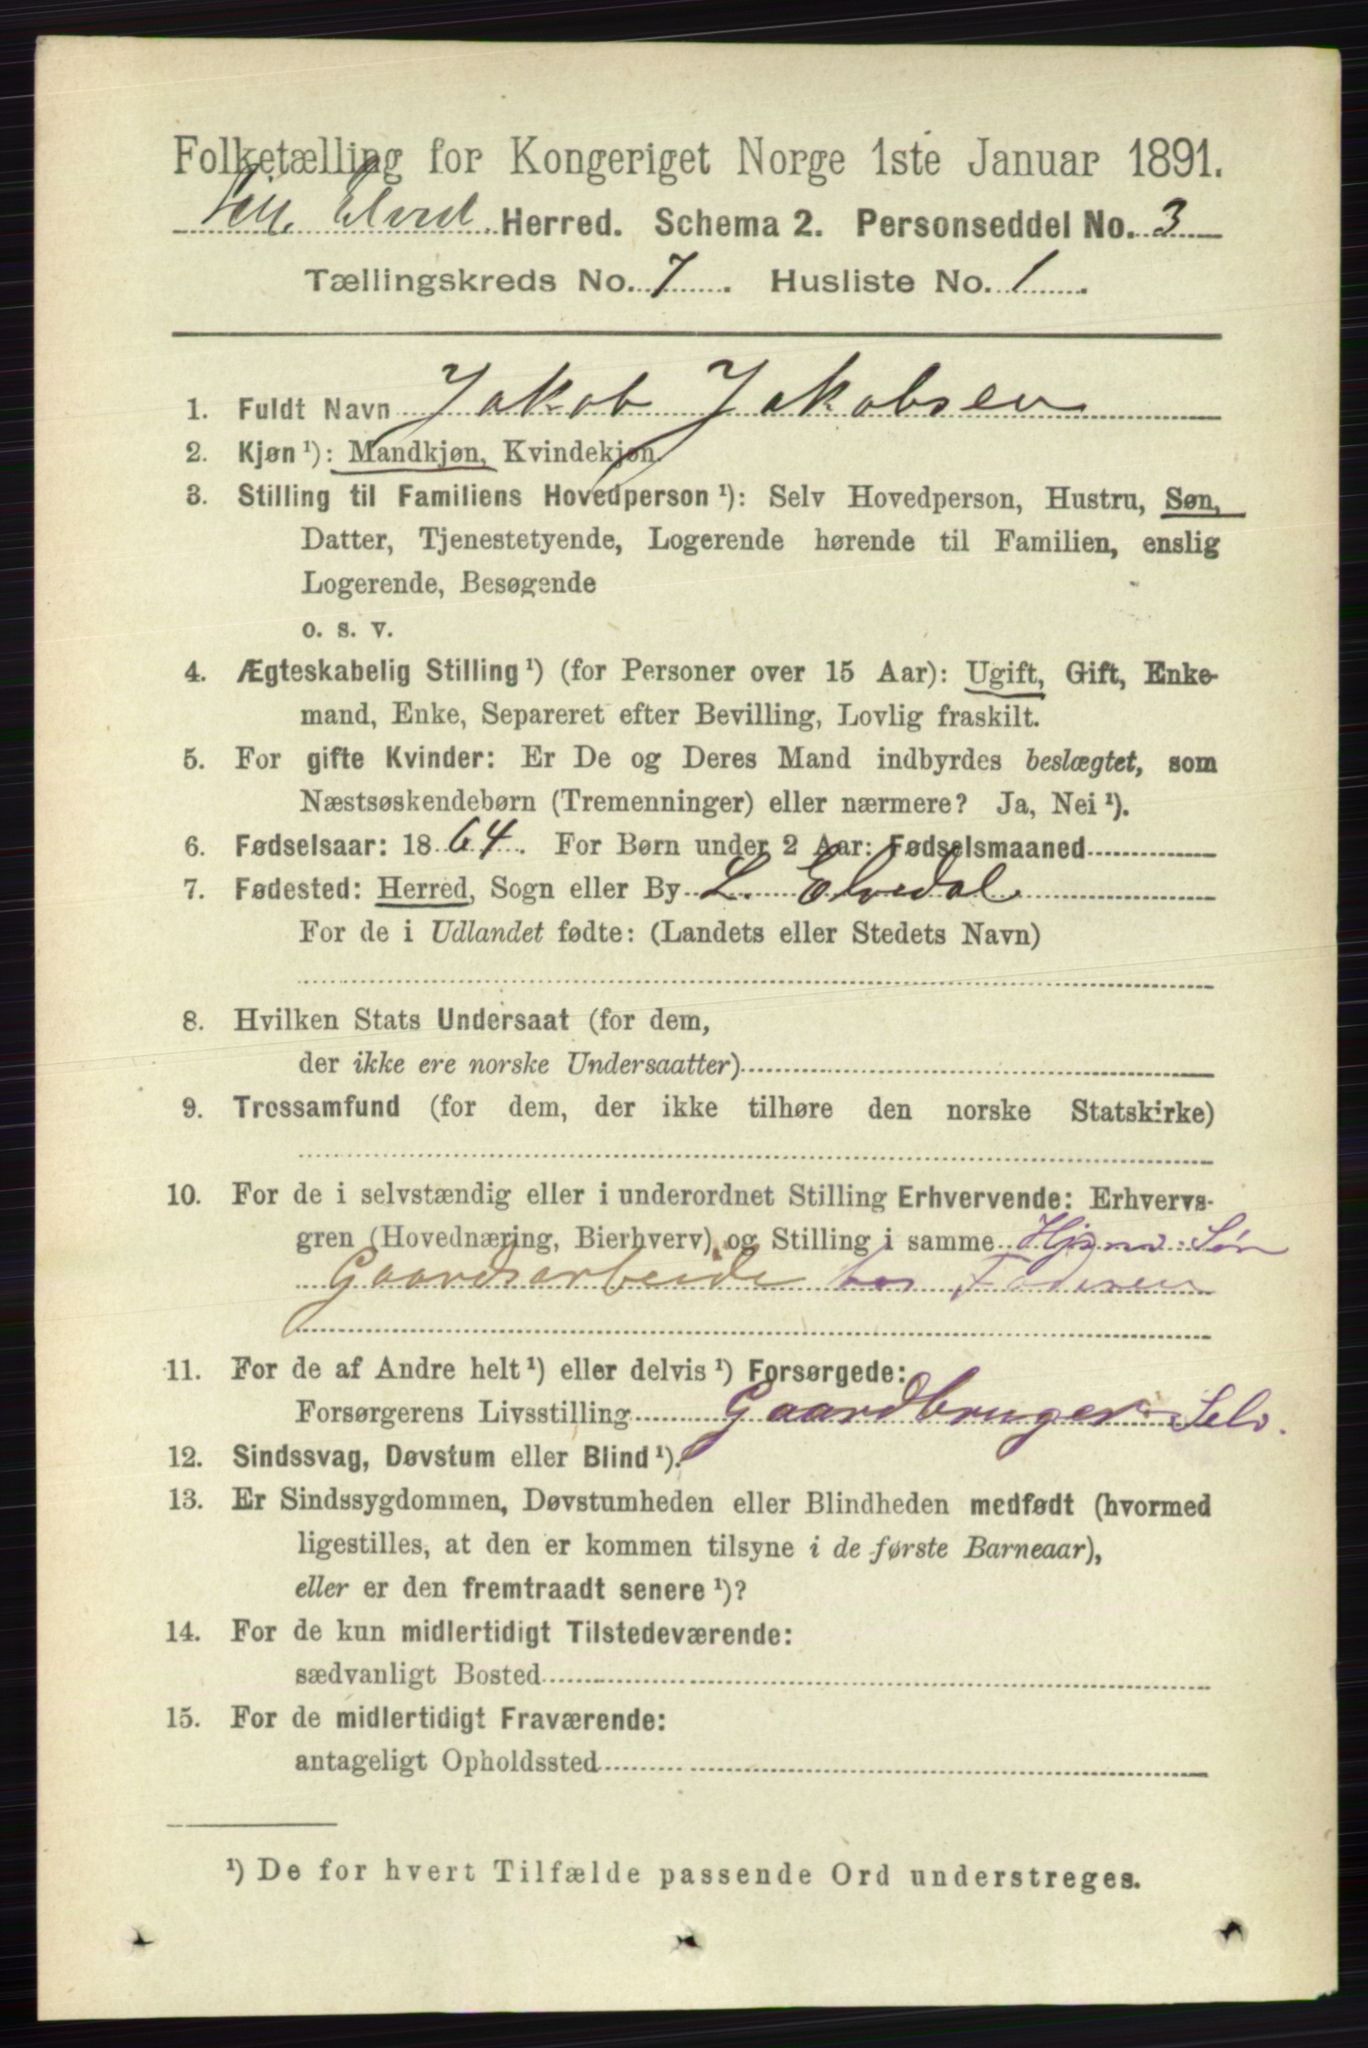 Folketælling for Kongeriget Norge 1ste Januar 1891.
Lille Elvdal. Herred. Schema 2. Personseddel No. 3
Tællingskreds No. 7. Husliste No. 1.
1. Fuldt Navn Jakob Jakobsen
2. Kjøn ¹): Mandkjøn, Kvindekjøn.
3. Stilling til Familiens Hovedperson ¹): Selv Hovedperson, Hustru, Søn,
Datter, Tjenestetyende, Logerende hørende til Familien, enslig
Logerende, Besøgende
o. s. v.
4. Ægteskabelig Stilling ¹) (for Personer over 15 Aar): Ugift, Gift, Enke-
mand, Enke, Separeret efter Bevilling, Lovlig fraskilt.
5. For gifte Kvinder: Er De og Deres Mand indbyrdes beslægtet, som
Næstsøskendebørn (Tremenninger) eller nærmere? Ja, Nei ¹).
6. Fødselsaar: 1864. For Børn under 2 Aar: Fødselsmaaned
7. Fødested: Herred, Sogn eller By L. Elvedal
For de i Udlandet fødte: (Landets eller Stedets Navn)
8. Hvilken Stats Undersaat (for dem,
der ikke ere norske Undersaatter)
9. Trossamfund (for dem, der ikke tilhøre den norske Statskirke)
10. For de i selvstændig eller i underordnet Stilling Erhvervende: Erhvervs-
gren (Hovednæring, Bierhverv) og Stilling i samme Hjemv. Søn
Gaardsarbeide hos Faderen
11. For de af Andre helt ¹) eller delvis ¹) Forsørgede:
Forsørgerens Livsstilling Gaardbruger Selv.
12. Sindssvag, Døvstum eller Blind ¹).
13. Er Sindssygdommen, Døvstumheden eller Blindheden medfødt (hvormed
ligestilles, at den er kommen tilsyne i de første Barneaar),
eller er den fremtraadt senere ¹)?
14. For de kun midlertidigt Tilstedeværende:
sædvanligt Bosted
15. For de midlertidigt Fraværende:
antageligt Opholdssted
¹) De for hvert Tilfælde passende Ord understreges.